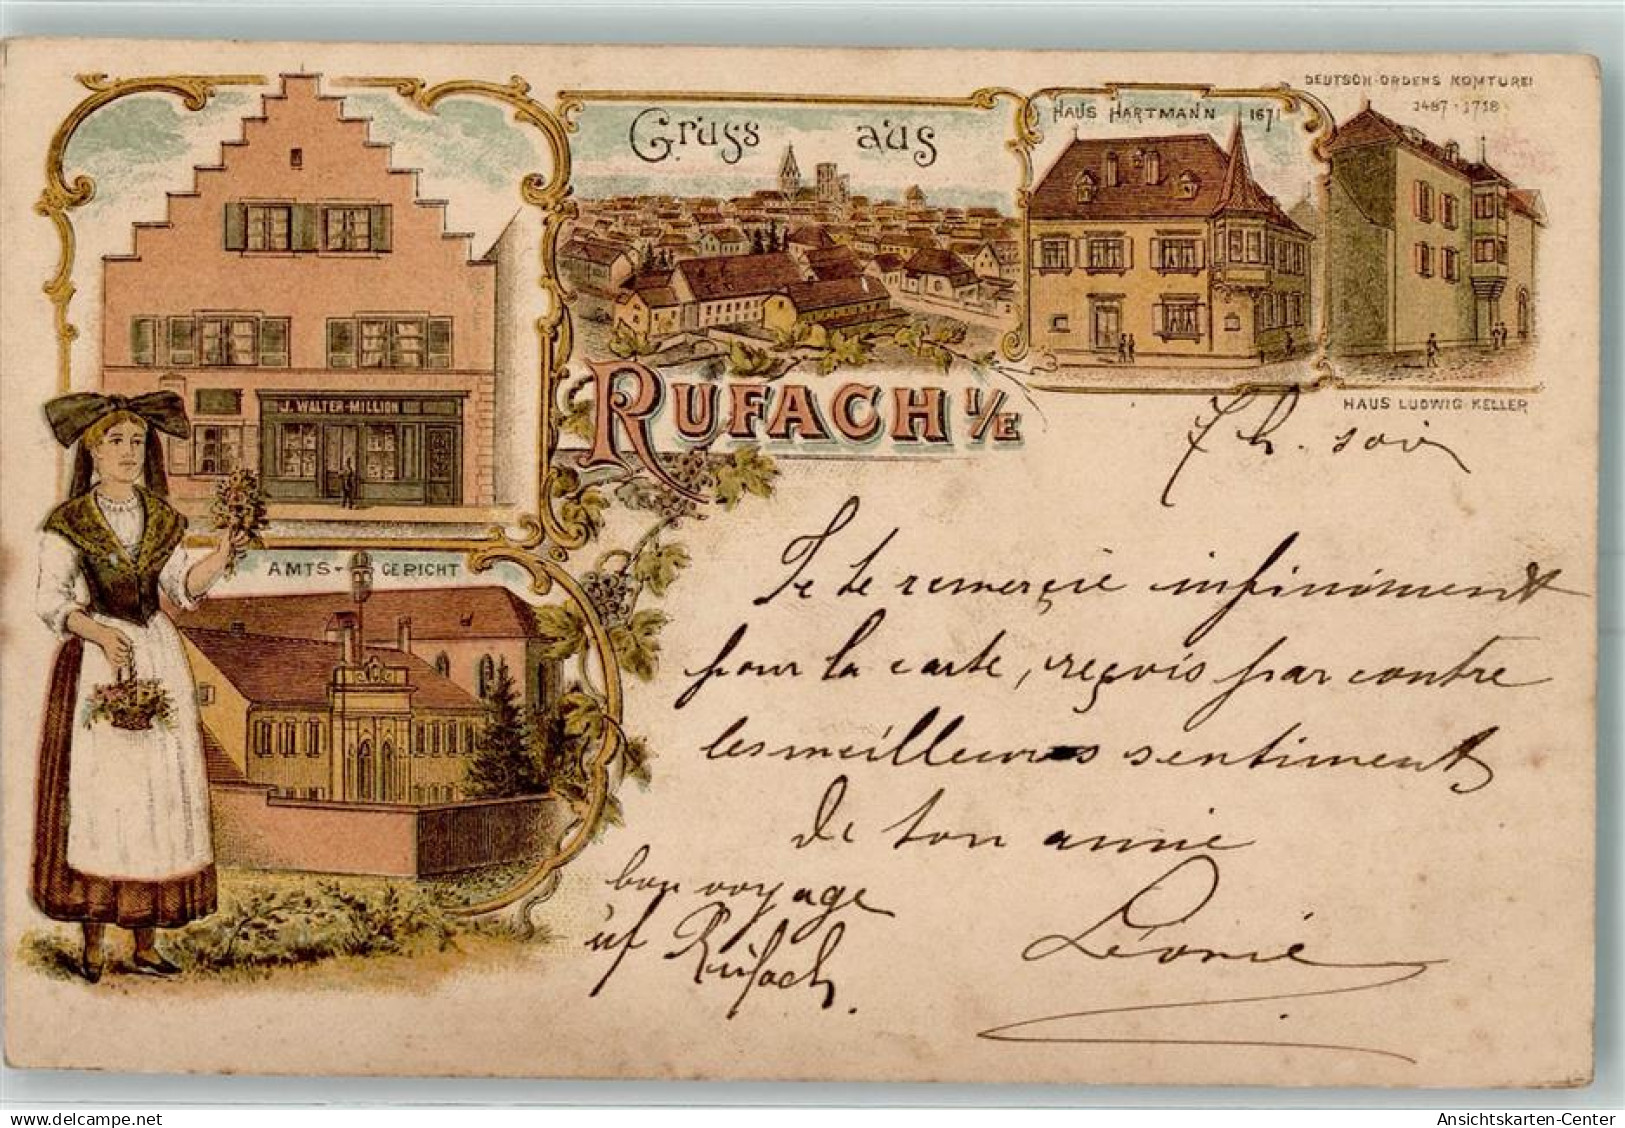 DEUTSCH-ORDENS KOMTUREI
1487 · 1718
HAUS HARTMANN 1671
Gruss aus
RUFACH I/E
HAUS LUDWIG KELLER
J. WALTER-MILLION
AMTS-GERICHT
7 h. soir
Je te remercie infiniment
pour la carte, reçois par contre
les meilleures sentiments
de ton amie
Léonie
bon voyage
uf Rufach.
Ansichtskarten-Center